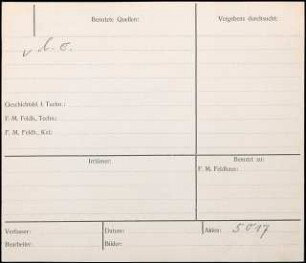 Benutzte Quellen:
Vergebens durchsucht:
v. b. o.
Geschichtsbl. f. Techn.:
F. M. Feldh., Techn.:
F. M. Feldh., Kal.:
Irrtümer:
Benutzt in:
F. M. Feldhaus:
Verfasser:
Datum:
Akten: 5017
Bearbeiter:
Bilder: